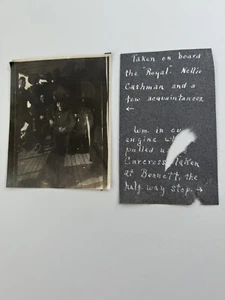 Taken on board
the "Royal". Nellie
Cashman and a
few acquaintances
←
Wm. in
engine
pulled
Carcross taken
at Bennett, the
half way stop. →